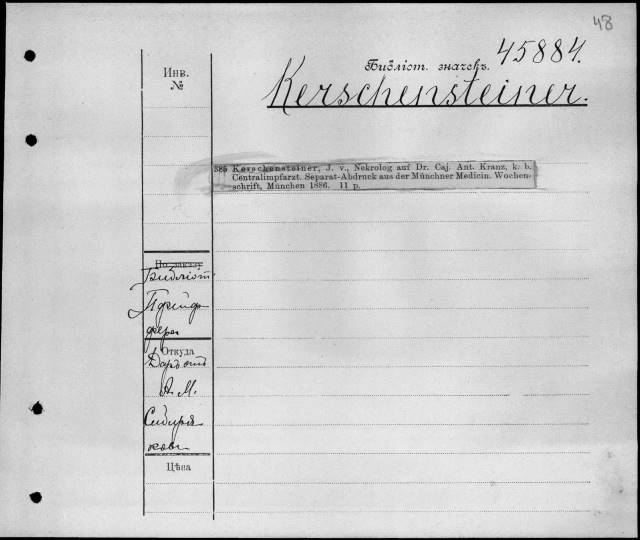 48
45884.
Библіот. значекъ.
Kerschensteiner.
Инв.
№
585 Kerschensteiner, J. v., Nekrolog auf Dr. Caj. Ant. Kranz, k. b.
Centralimpfarzt. Separat-Abdruck aus der Münchner Medicin. Wochen-
schrift, München 1886. 11 p.
По заказу
Библіот.
Пфейф-
фера
Откуда
Даръ отъ
А. М.
Сибиря-
кова
Цѣна